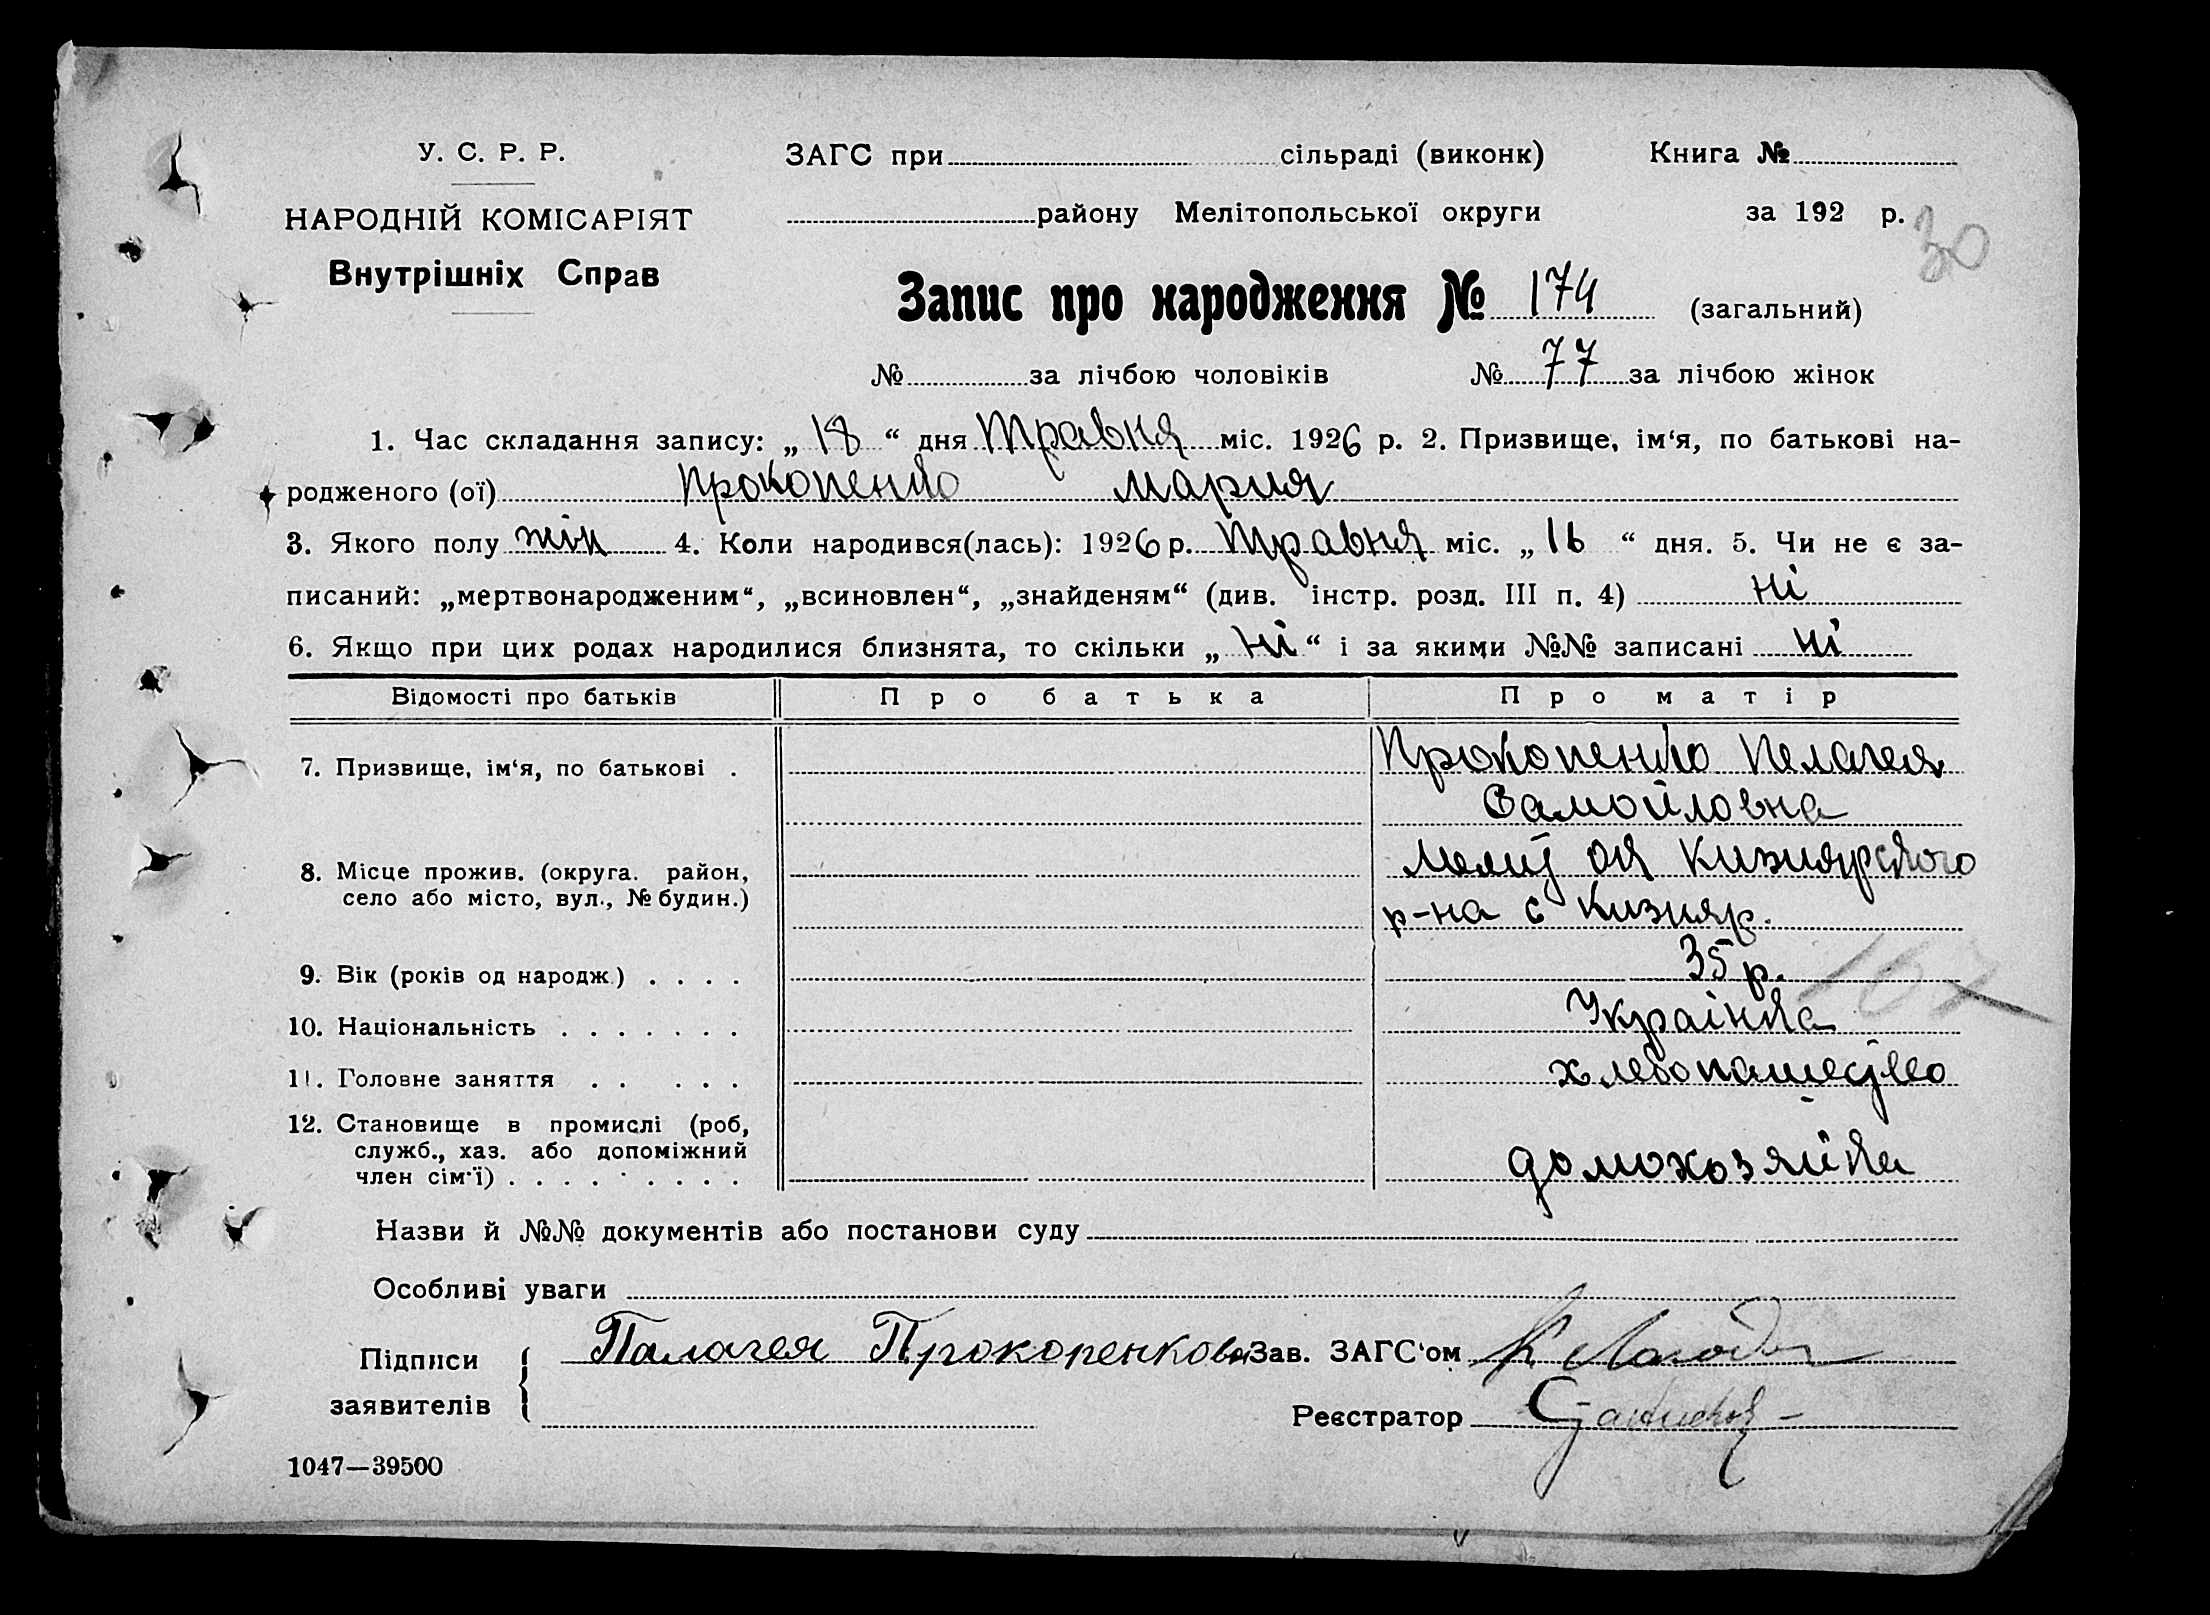 У. С. Р. Р.
НАРОДНІЙ КОМІСАРІЯТ
Внутрішніх Справ
ЗАГС при сільраді (виконк) Книга №
району Мелітопольської округи за 192 р.
30
Запис про народження № 174 (загальний)
№ за лічбою чоловіків № 77 за лічбою жінок
1. Час складання запису: „ 18 “ дня Травня міс. 1926 р. 2. Призвище, ім‘я, по батькові на-
родженого (ої) Прокопенко Мария
3. Якого полу жін 4. Коли народився(лась): 1926 р. Травня міс. „ 16 “ дня. 5. Чи не є за-
писаний: „мертвонародженим“, „всиновлен“, „знайденям“ (див. інстр. розд. III п. 4) ні
6. Якщо при цих родах народилися близнята, то скільки „ ні “ і за якими №№ записані ні
Відомості про батьків Про батька Про матір
7. Призвище, ім‘я, по батькові . Прокопенко Пелагея
Самойловна
8. Місце прожив. (округа. район,
село або місто, вул., № будин.)
Кизиярского
р-на с Кизияр.
9. Вік (років од народж.) . . . . 35 р.
167
10. Національність . . . . . . . Українка
11. Головне заняття . . . . . хлебопашество
12. Становище в промислі (роб,
служб., хаз. або допоміжний
член сім‘ї) . . . . . . . . . домохозяйка
Назви й №№ документів або постанови суду
Особливі уваги
Підписи заявителів { Палагея Прокопенкова Зав. ЗАГС‘ом
Реєстратор
1047—39500